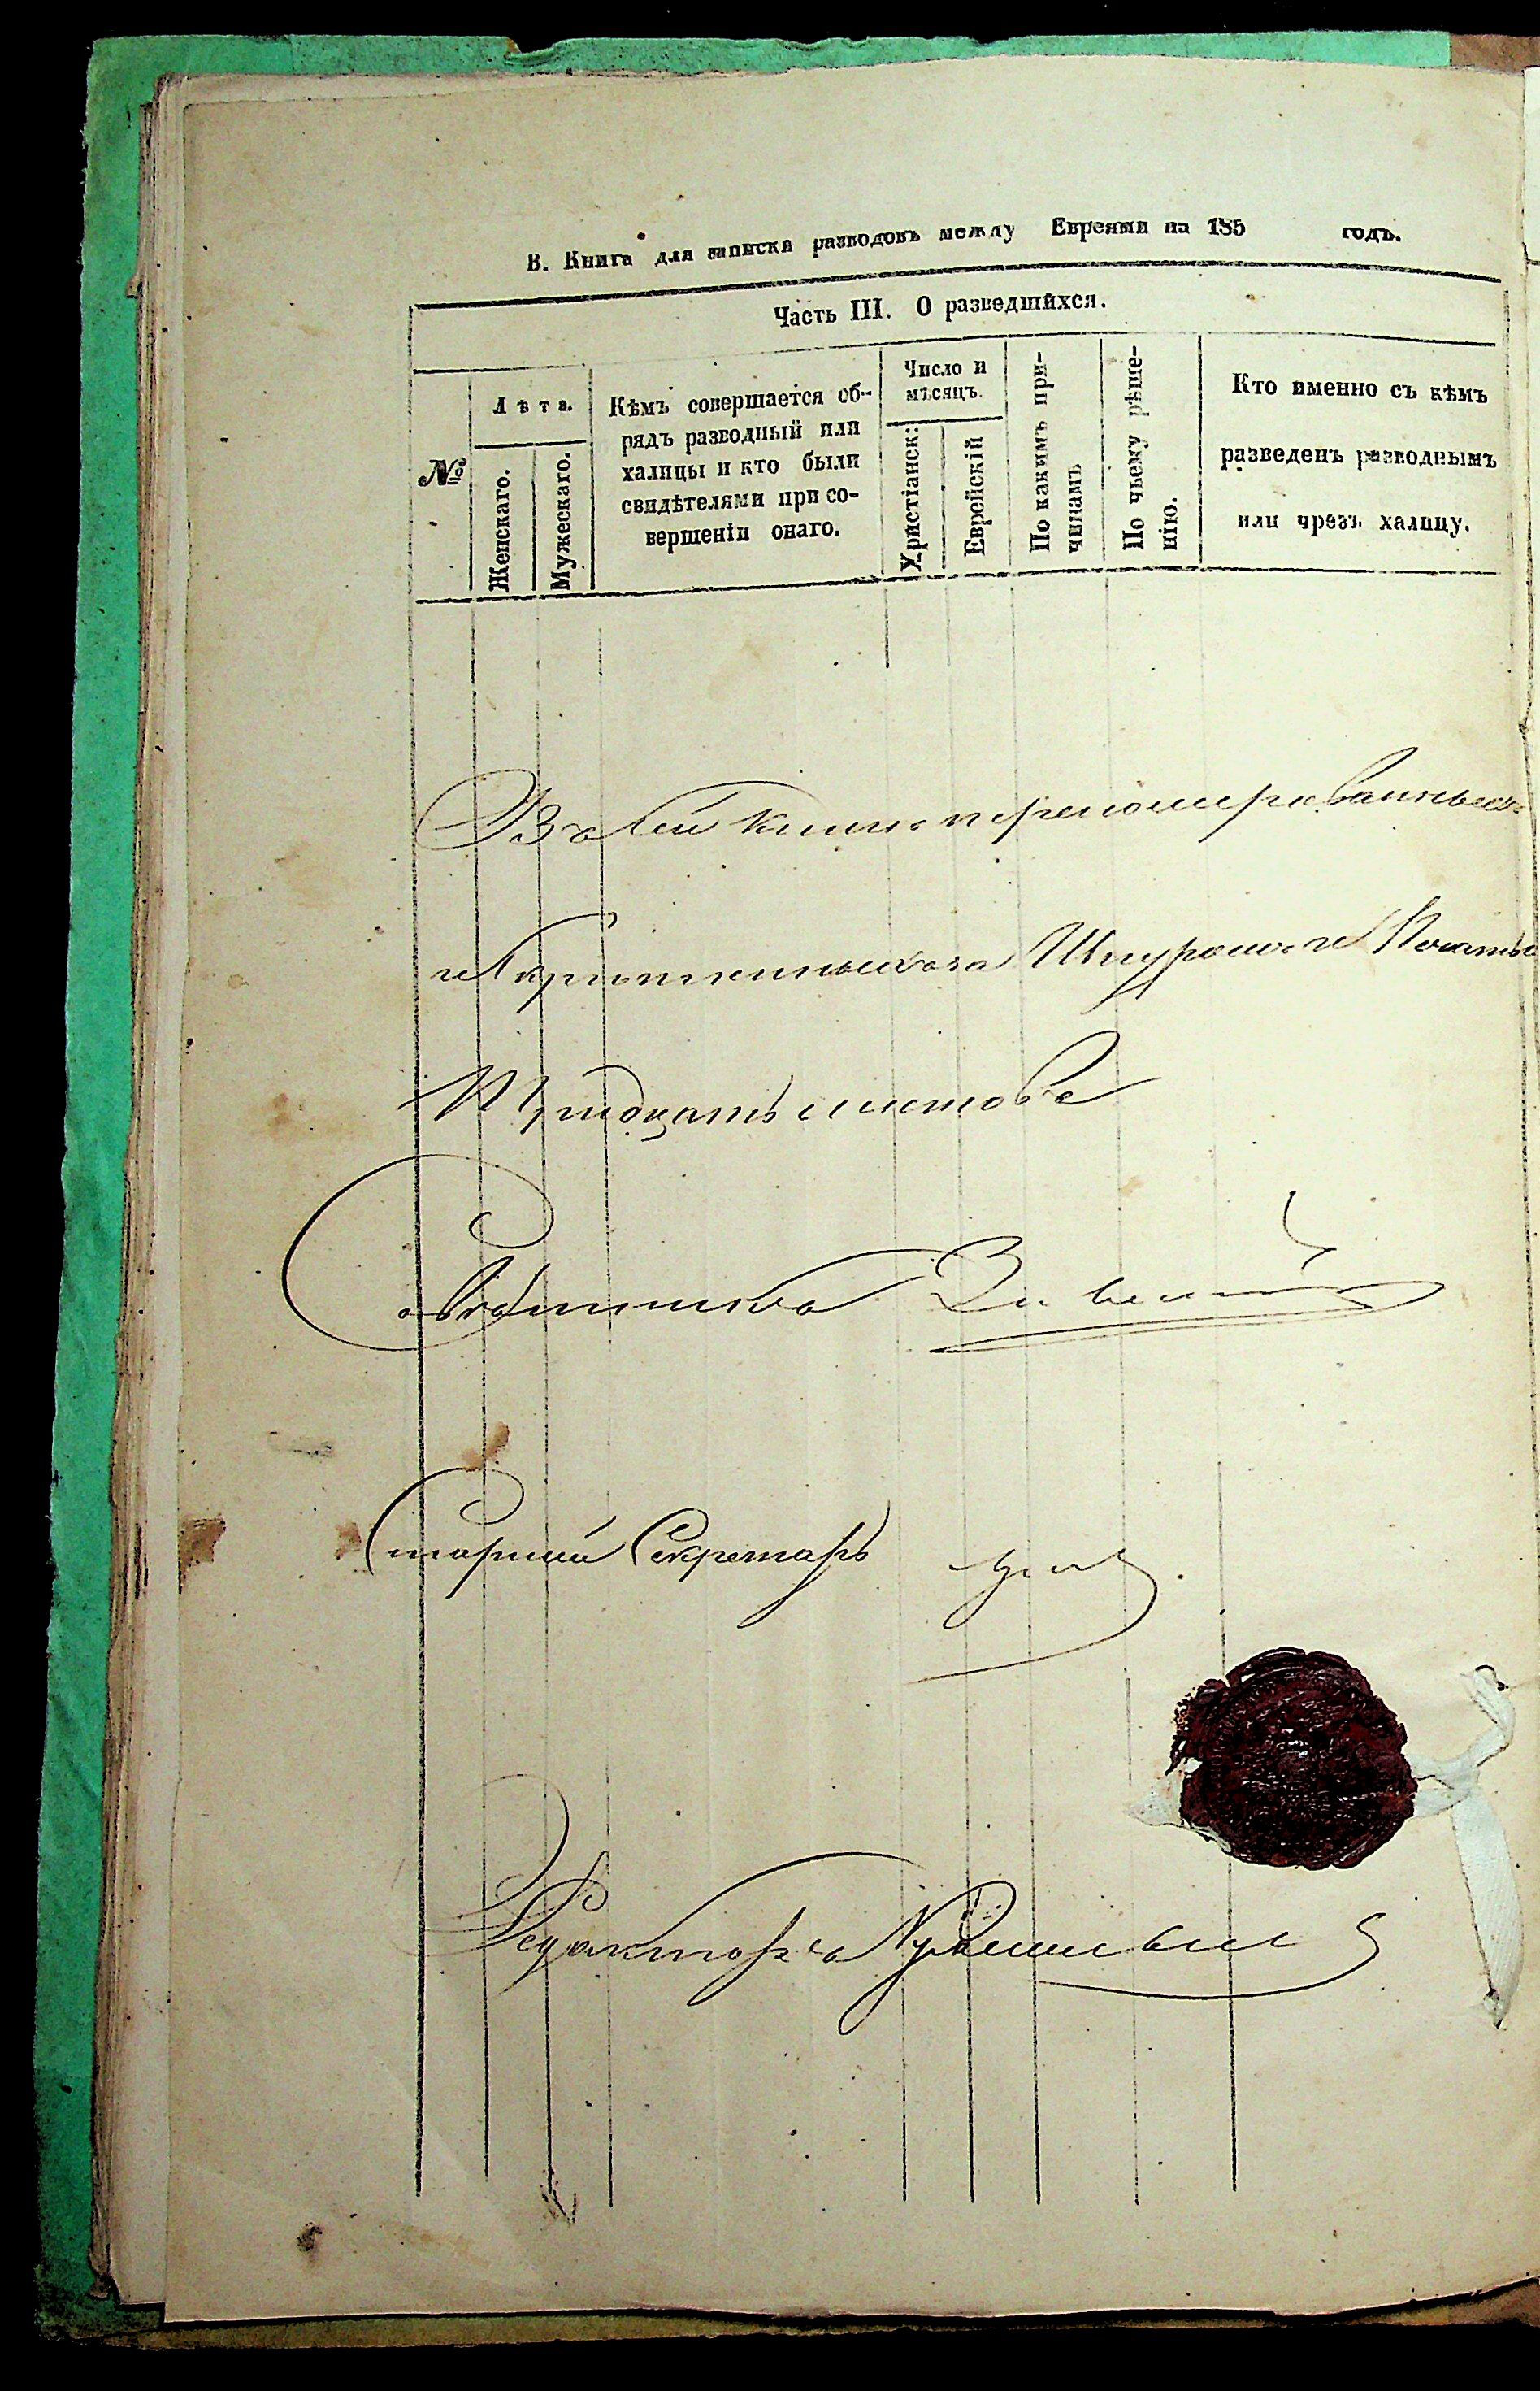 В. Книга для записки разводовъ между Евреями на 185 годъ.
Часть III. О разведшихся.
№
Лѣта.
Женскаго.
Мужескаго.
Кѣмъ совершается об-
рядъ разводный или
халицы и кто были
свидѣтелями при со-
вершеніи онаго.
Число и
мѣсяцъ.
Христіанск:
Еврейскій
По какимъ при-
чинамъ
По чьему рѣше-
нію.
Кто именно съ кѣмъ
разведенъ разводнымъ
или чрезъ халицу.
Въ сей книге перенумерованныхъ
и скрепленныхъ за Шнуромъ и Печатью
Тридцать листовъ
Советникъ
Старший Секретарь
Редакторъ